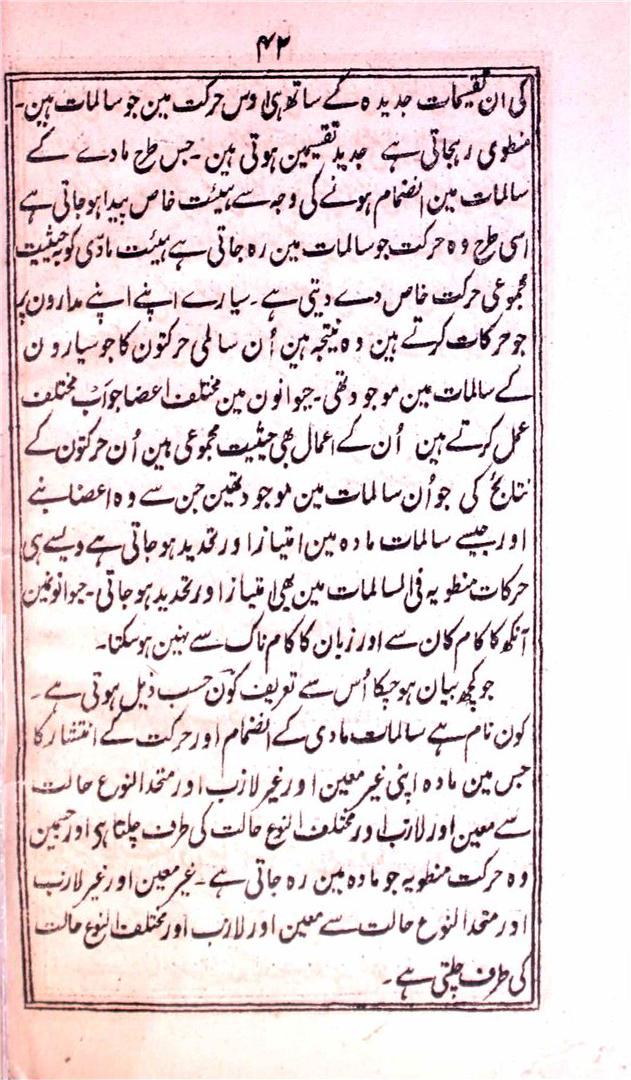 ۴۲
کی ان تقسیمات جدیدہ کے ساتھ ہی اوس حرکت مین جو سالمات مین
منطوی رہجاتی ہے جدید تقسیمین ہوتی ہین۔ جس طرح مادے کے
سالمات مین انضمام ہونے کی وجہ سے ہیئت خاص پیدا ہو جاتی ہے
اسی طرح وہ حرکت جو سالمات مین رہ جاتی ہے ہیئت مادّی کو بہ حیثیت
مجموعی حرکت خاص دے دیتی ہے۔ سیارے اپنے اپنے مدارون پر
جو حرکات کرتے ہین وہ نتیجہ ہین اُن سالمی حرکتون کا جو سیارون
کے سالمات مین موجود تھی۔ حیوانون مین مختلف اعضا جو اَب مختلف
عمل کرتے ہین اُن کے اعمال بھی حیثیت مجموعی ہین اُن حرکتون کے
نتائج کی جو اُن سالمات مین موجود تھین جن سے وہ اعضا بنے
اور جیسے سالمات مادہ مین امتیاز اور تحدید ہو جاتی ہے ویسے ہی
حرکات منطویہ فی السالمات مین بھی امتیاز اور تحدید ہو جاتی۔ حیوانونمین
آنکھ کا کام کان سے اور زبان کا کام ناک سے نہین ہو سکتا۔
جو کچھ بیان ہو چکا اُس سے تعریف کَون حسب ذیل ہوتی ہے۔
کون نام ہے سالمات مادی کے انضمام اور حرکت کے انتشار کا
جس مین مادہ اپنی غیر معین اور غیر لازب اور متحد النوع حالت
سے معین اور لازب اور مختلف النوع حالت کی طرف چلتا ہی اور جسمین
وہ حرکت منطویہ جو مادہ مین رہ جاتی ہے۔ غیر معین اور غیر لازب
اور متحد النوع حالت سے معین اور لازب اور مختلف النوع حالت
کی طرف چلتی ہے۔